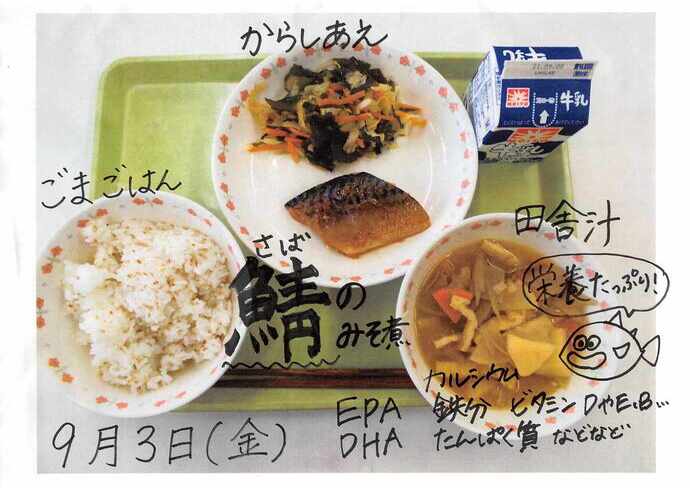 からしあえ
牛乳
ごまごはん
田舎汁
さば
鯖の
みそ煮
栄養たっぷり!
カルシウム
EPA 鉄分 ビタミンDやE、B...
DHA たんぱく質 などなど
9月3日(金)